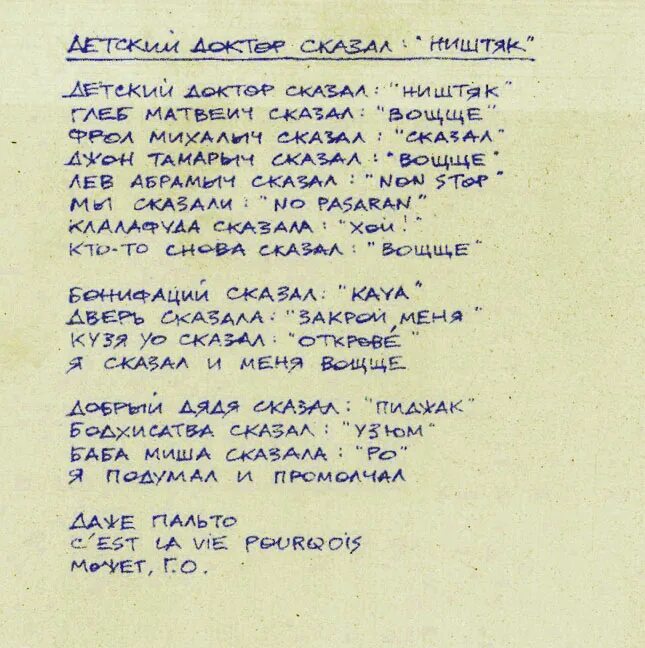 ДЕТСКИЙ ДОКТОР СКАЗАЛ: "НИШТЯК"
ДЕТСКИЙ ДОКТОР СКАЗАЛ: "НИШТЯК"
ГЛЕБ МАТВЕИЧ СКАЗАЛ: "ВОЩЩЕ"
ФРОЛ МИХАЛЫЧ СКАЗАЛ: "СКАЗАЛ"
ДЖОН ТАМАРЫЧ СКАЗАЛ: "ВОЩЩЕ"
ЛЕВ АБРАМЫЧ СКАЗАЛ: "NON STOP"
МЫ СКАЗАЛИ: "NO PASARAN"
КЛАЛАФУДА СКАЗАЛА: "ХОЙ!"
КТО-ТО СНОВА СКАЗАЛ: "ВОЩЩЕ"
БОНИФАЦИЙ СКАЗАЛ: "KAYA"
ДВЕРЬ СКАЗАЛА: "ЗАКРОЙ МЕНЯ"
КУЗЯ УО СКАЗАЛ: "ОТКРОВÉ"
Я СКАЗАЛ И МЕНЯ ВОЩЩЕ
ДОБРЫЙ ДЯДЯ СКАЗАЛ: "ПИДЖАК"
БОДХИСАТВА СКАЗАЛ: "УЗЮМ"
БАБА МИША СКАЗАЛА: "РО"
Я ПОДУМАЛ И ПРОМОЛЧАЛ
ДАЖЕ ПАЛЬТО
C'EST LA VIE POURQOIS
МОЖЕТ, Г.О.